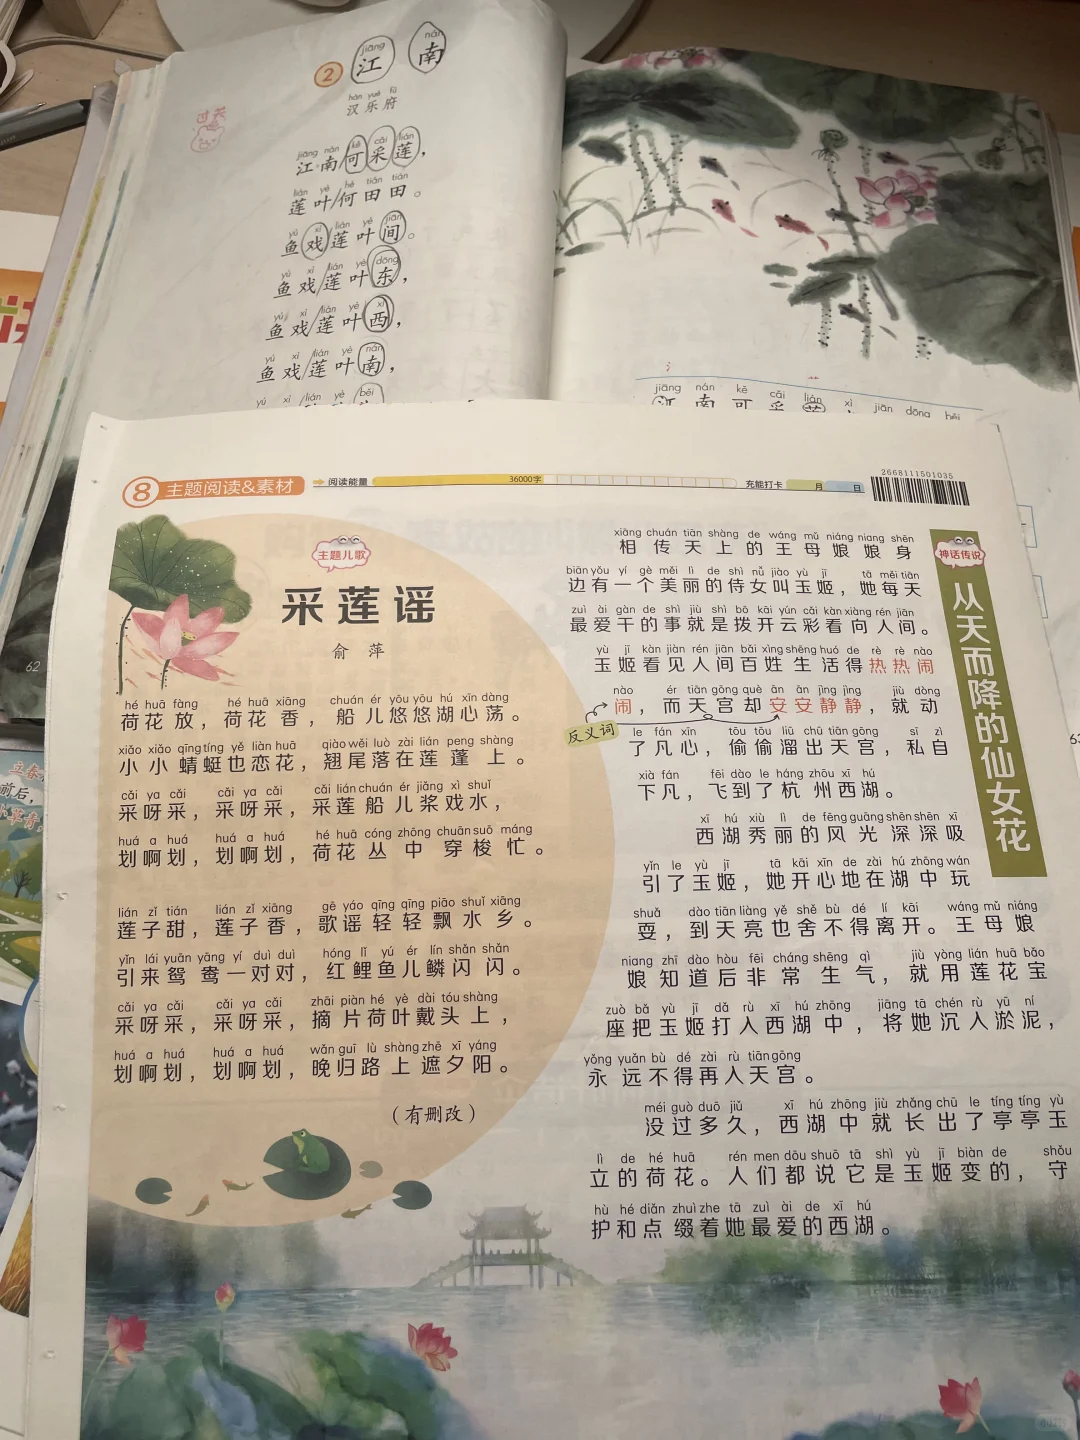 2 江南
汉乐府
江南可采莲，
莲叶何田田。
鱼戏莲叶间。
鱼戏莲叶东，
鱼戏莲叶西，
鱼戏莲叶南，
62
jiāng nán kě cǎi lián xì jiān dōng běi
江南可采莲
8 主题阅读&素材
阅读能量 36000字
充能打卡 月 日
2668111501035
主题儿歌
采莲谣
俞萍
hé huā fàng hé huā xiāng chuán ér yōu yōu hú xīn dàng
荷花放，荷花香，船儿悠悠湖心荡。
xiǎo xiǎo qīng tíng yě liàn huā qiào wěi luò zài lián peng shàng
小小蜻蜓也恋花，翘尾落在莲蓬上。
cǎi ya cǎi cǎi ya cǎi cǎi lián chuán ér jiǎng xì shuǐ
采呀采，采呀采，采莲船儿桨戏水，
huá a huá huá a huá hé huā cóng zhōng chuān suō máng
划啊划，划啊划，荷花丛中穿梭忙。
lián zǐ tián lián zǐ xiāng gē yáo qīng qīng piāo shuǐ xiāng
莲子甜，莲子香，歌谣轻轻飘水乡。
yǐn lái yuān yāng yí duì duì hóng lǐ yú ér lín shǎn shǎn
引来鸳鸯一对对，红鲤鱼儿鳞闪闪。
cǎi ya cǎi cǎi ya cǎi zhāi piàn hé yè dài tóu shàng
采呀采，采呀采，摘片荷叶戴头上，
huá a huá huá a huá wǎn guī lù shàng zhē xī yáng
划啊划，划啊划，晚归路上遮夕阳。
（有删改）
神话传说
从天而降的仙女花
xiāng chuán tiān shàng de wáng mǔ niáng niang shēn
相传天上的王母娘娘身
biān yǒu yí gè měi lì de shì nǚ jiào yù jī tā měi tiān
边有一个美丽的侍女叫玉姬，她每天
zuì ài gàn de shì jiù shì bō kāi yún cǎi kàn xiàng rén jiān
最爱干的事就是拨开云彩看向人间。
yù jī kàn jiàn rén jiān bǎi xìng shēng huó de rè rè nào
玉姬看见人间百姓生活得热热闹
nào ér tiān gōng què ān ān jìng jìng jiù dòng
闹，而天宫却安安静静，就动
反义词
le fán xīn tōu tōu liū chū tiān gōng sī zì
了凡心，偷偷溜出天宫，私自
xià fán fēi dào le háng zhōu xī hú
下凡，飞到了杭州西湖。
xī hú xiù lì de fēng guāng shēn shēn xī
西湖秀丽的风光深深吸
yǐn le yù jī tā kāi xīn de zài hú zhōng wán
引了玉姬，她开心地在湖中玩
shuǎ dào tiān liàng yě shě bù dé lí kāi wáng mǔ niáng
耍，到天亮也舍不得离开。王母娘
niang zhī dào hòu fēi cháng shēng qì jiù yòng lián huā bǎo
娘知道后非常生气，就用莲花宝
zuò bǎ yù jī dǎ rù xī hú zhōng jiāng tā chén rù yū ní
座把玉姬打入西湖中，将她沉入淤泥，
yǒng yuǎn bù dé zài rù tiān gōng
永远不得再入天宫。
méi guò duō jiǔ xī hú zhōng jiù zhǎng chū le tíng tíng yù
没过多久，西湖中就长出了亭亭玉
lì de hé huā rén men dōu shuō tā shì yù jī biàn de shǒu
立的荷花。人们都说它是玉姬变的，守
hù hé diǎn zhuì zhe tā zuì ài de xī hú
护和点缀着她最爱的西湖。